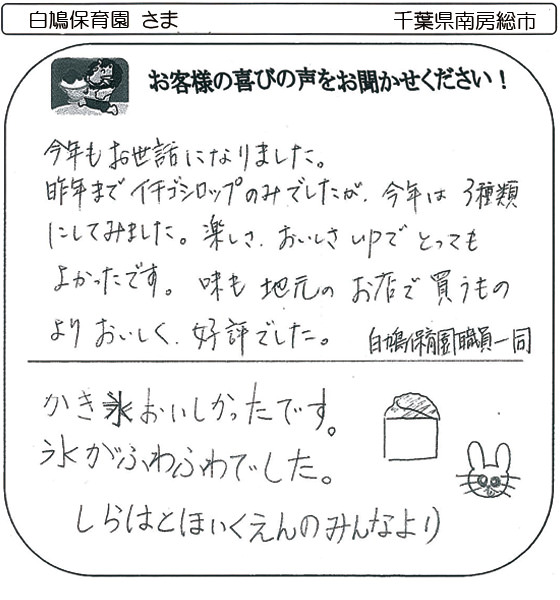 白鳩保育園 さま
千葉県南房総市
お客様の喜びの声をお聞かせください！
今年もお世話になりました。
昨年までイチゴシロップのみでしたが、今年は3種類
にしてみました。楽しさ、おいしさUPでとっても
よかったです。味も地元のお店で買うもの
よりおいしく、好評でした。白鳩保育園職員一同
かき氷おいしかったです。
氷がふわふわでした。
しらはとほいくえんのみんなより